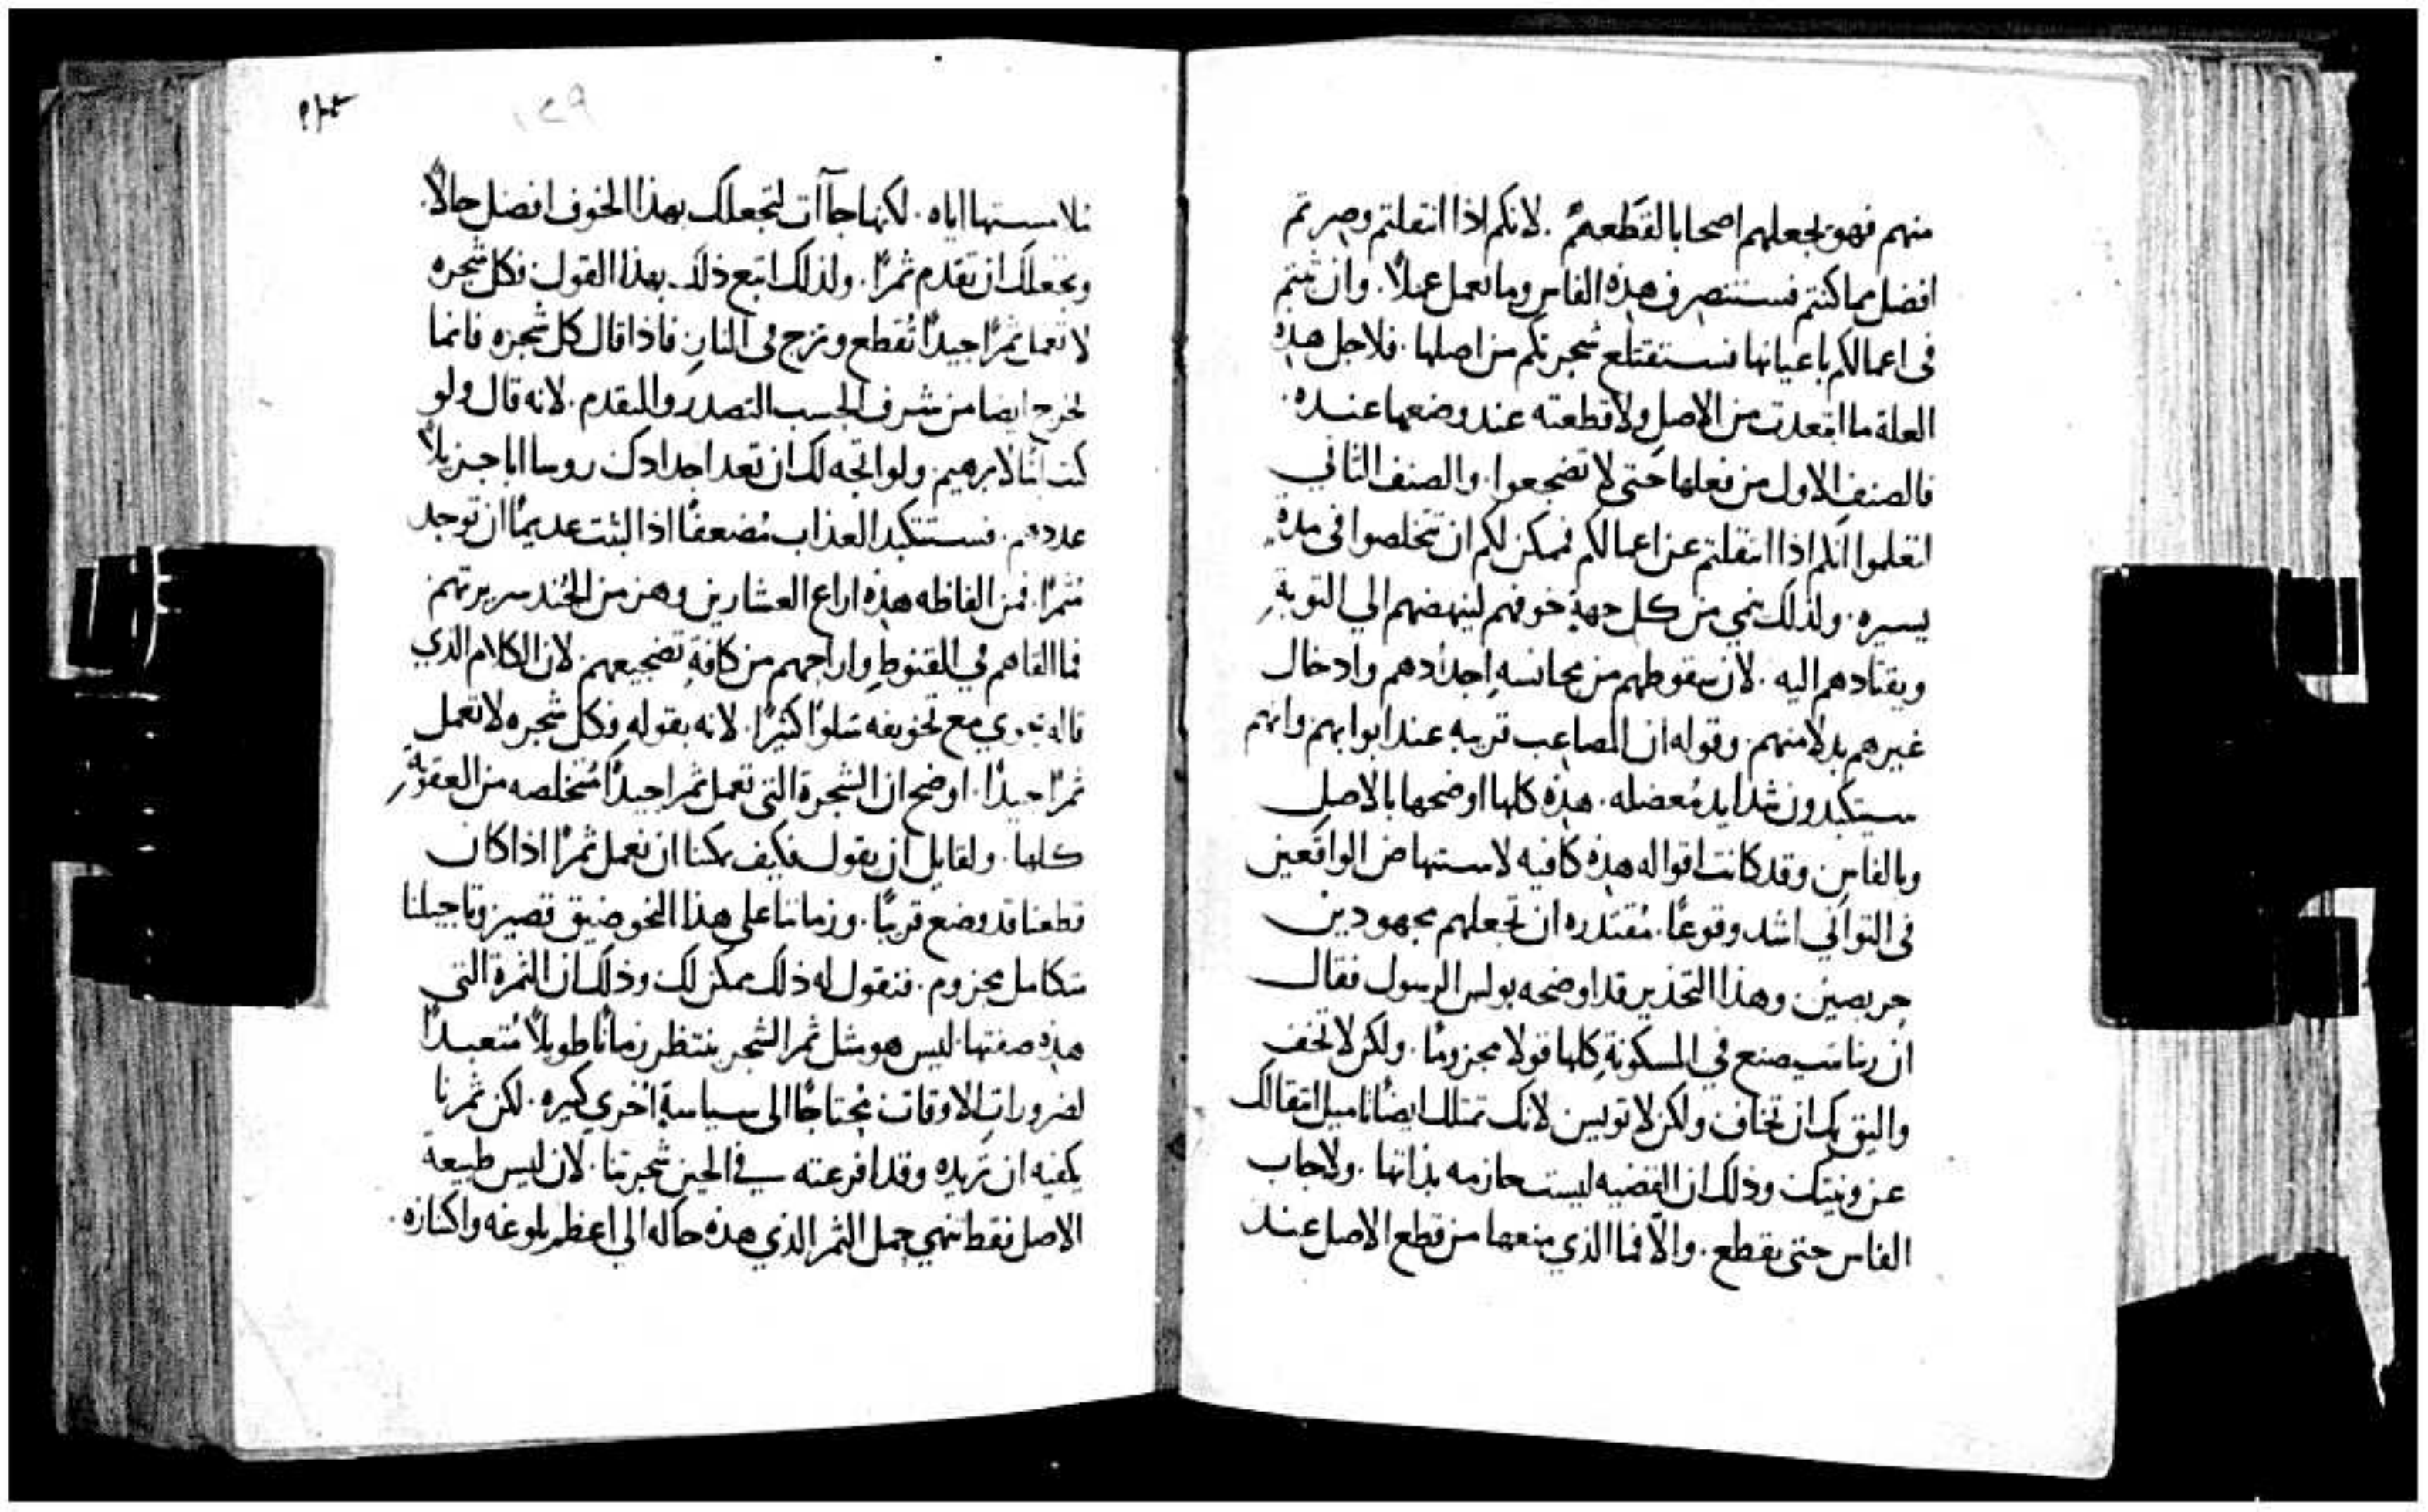 منهم فهو يجعلهم اصحابا لقطعهم . لانكم اذا انتقلتم وصرتم
افضل مما كنتم فستنصرف هذه الفاس وما تعمل عملاً. وان ثبتم
في اعمالكم باعيانها فستقتلع شجرتكم من اصلها . فلاجل هذه
العلة ما ابتعدت من الاصل ولا قطعته عند وضعها عنده .
فالصنف الاول من فعلها حتى لا تضجعوا . والصنف الثاني
لتعلموا انكم اذا انتقلتم عن اعمالكم فممكن لكم ان تتخلصوا في مدةٍ
يسيره . ولذلك نمي من كل جهةٍ خوفهم لينهضهم الي التوبةِ
ويقتادهم اليه . لان سقوطهم من مجانسه اجدادهم وادخال
غيرهم بدلا منهم . وقوله ان المصاعب قريبه عند ابوابهم وانهم
سيتكبدون شدايد مُعضله . هذه كلها اوضحها بالاصل
وبالفاس وقد كانت اقواله هذه كافيه لاستنهاض الواقعين
في التواني اشد وقوعًا . مُقتدره ان تجعلهم مجهودين
حريصين . وهذا التحذير قد اوضحه بولس الرسول فقال
ان ربنا سيصنع في المسكونةِ كلها قولا مجزومًا . ولكن لا تخف
واليق بك ان تخاف ولكن لا توييس لانك تمتلك ايضًا تاميل انتقالك
عن ونيتك وذلك ان القضيه ليست حازمه بذاتها . ولا جاب
الفاس حتى يقطع . والّا فما الذي منعها من قطع الاصل عند
ملامستها اياه . لكنها جاآت لتجعلك بهذا الخوف افضل حالاً .
وتجعلك ان تقدم ثمرًا . ولذلك اتبع ذلك بهذا القول فكل شجره
لا تعمل ثمرًا جيدًا تُقطع وتزج في النار . فاذا قال كل شجره فانما
يخرج ايضا من شرف الحسب التصدر والتقدم . لانه قال ولو
كنت ابنًا لابرهيم . ولو اتجه لك ان تعد اجدادك روسا ابا جزيلاً
عددهم . فستتكبد العذاب مُضعفًا اذا لبثت عديمًا ان توجد
مُثمرًا . فمن الفاظه هذه اراع العشارين وهز من الجُند سريرتهم
فما القاهم في القنوطِ واراحهم من كافةِ تضجيعهم . لان الكلام الذي
قاله يحوي مع تخويفه سَلوًا كثيرًا . لانه بقوله وفكل شجره لا تعمل
ثمرًا جيدًا . اوضح ان الشجرة التي تعمل ثمرا جيدًا مُتخلصه من العقوبةِ
كلها . ولقايل ان يقول فكيف يمكنا ان نعمل ثمرًا اذا كان
قطعنا قد وضع قريبًا . وزماننا على هذا النحو ضيق قصير وتاجيلنا
متكامل مجزوم . فنقول له ذلك ممكن لك وذلك ان الثمرة التي
هذه صفتها . ليس هو مثل ثمر الشجر ينتظر زمانًا طويلاً مُتعبدًا
لضرورات الاوقات مُحتاجًا الى سياسةٍ اخري كثيره . لكن ثمرنا
يكفيه ان تريده وقد افرعته في الحين شجرتنا . لان ليس طبيعة
الاصل فقط تنهي حمل الثمر الذي هذه حاله الي اعظم بلوغه واكتنازه .